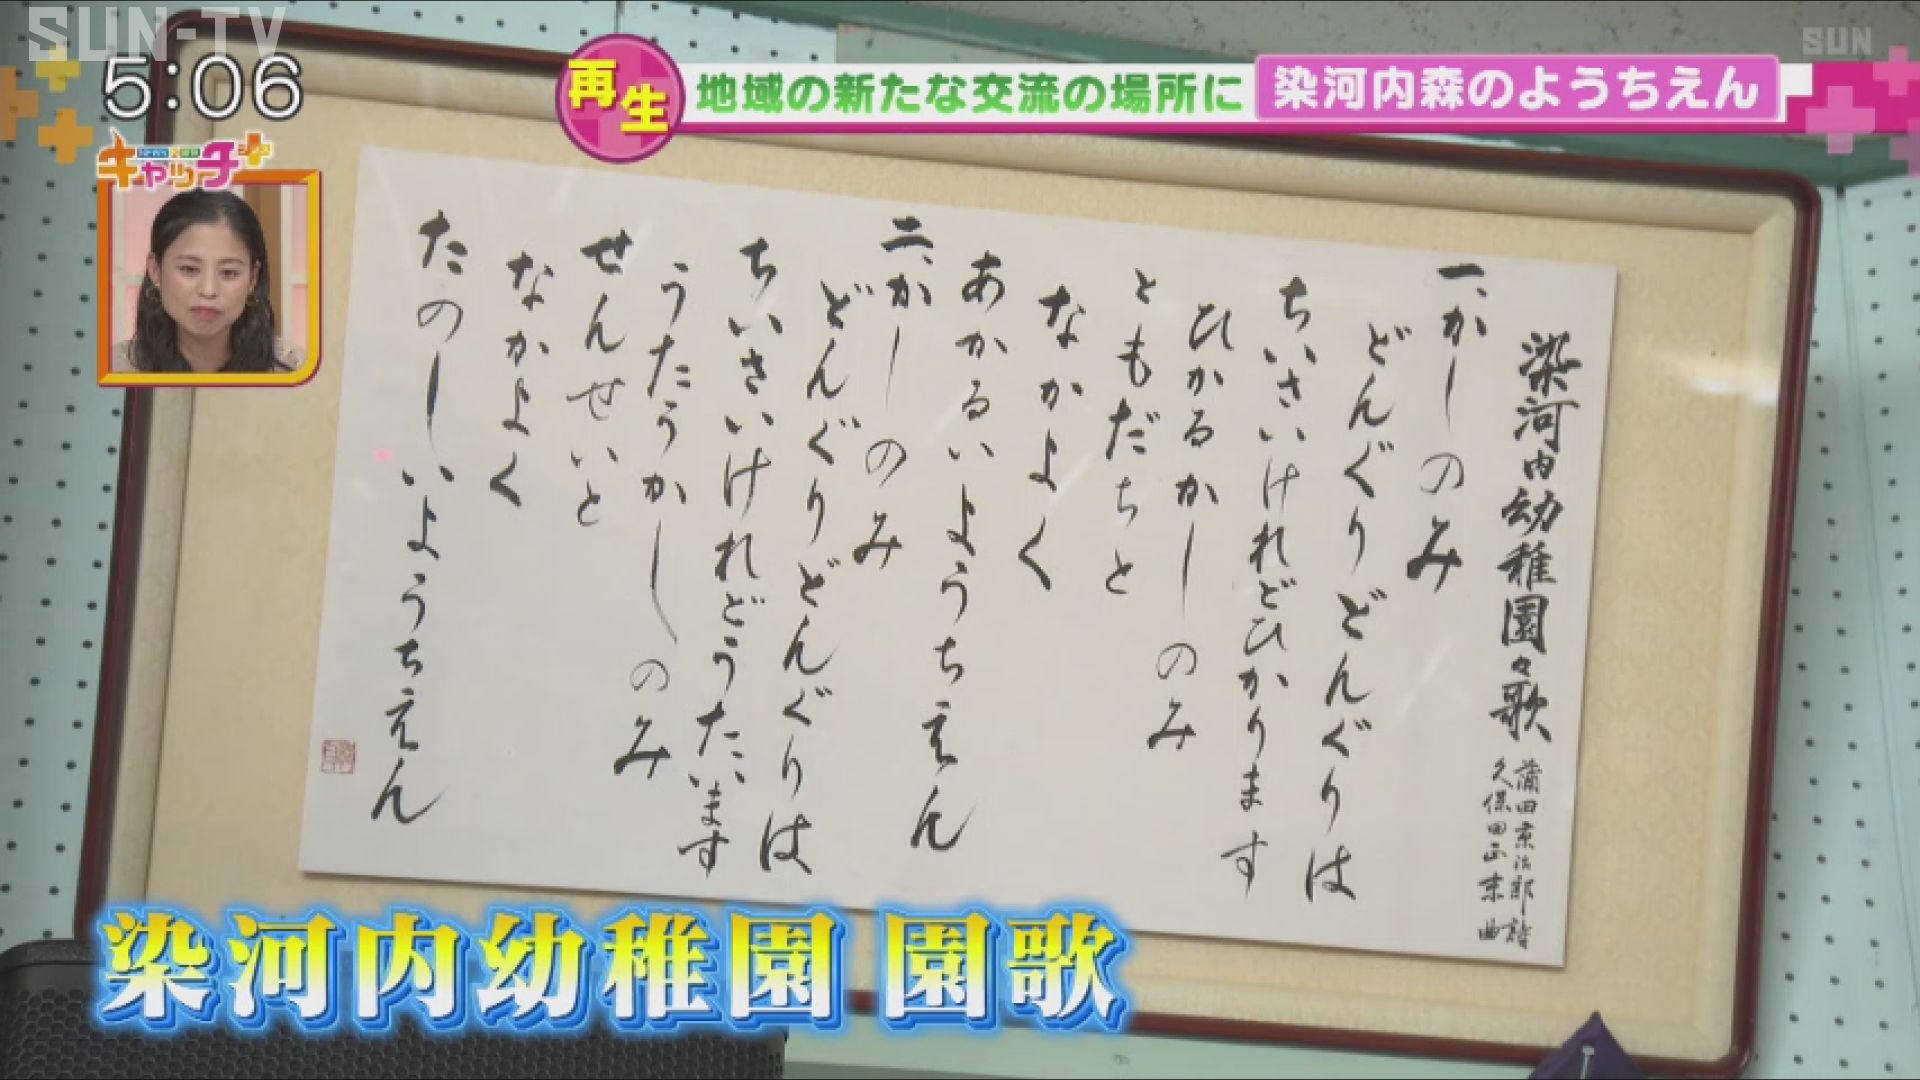 SUN-TV
SUN
5:06
キャッチ+
再生
地域の新たな交流の場所に
染河内森のようちえん
染河内幼稚園々歌
久保田正 曲
一、かーしのみ
どんぐりどんぐりは
ちいさいけれどひかります
ひかるかーしのみ
ともだちと
なかよく
あかるいようちえん
二、かーしのみ
どんぐりどんぐりは
ちいさいけれどうたいます
うたうかーしのみ
せんせいと
なかよく
たのーしいようちえん
染河内幼稚園 園歌